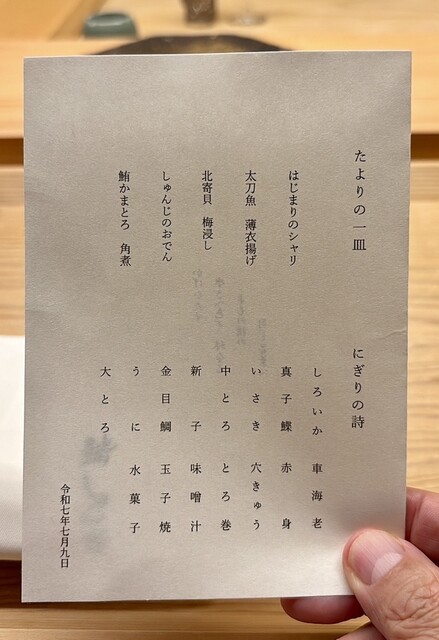 たよりの一皿
はじまりのシャリ
太刀魚 薄衣揚げ
北寄貝 梅浸し
しゅんじのおでん
鮪かまとろ 角煮
にぎりの詩
しろいか 車海老
真子鰈 赤身
いさき 穴きゅう
中とろ とろ巻
新子 味噌汁
金目鯛 玉子焼
うに 水菓子
大とろ
令和七年七月九日